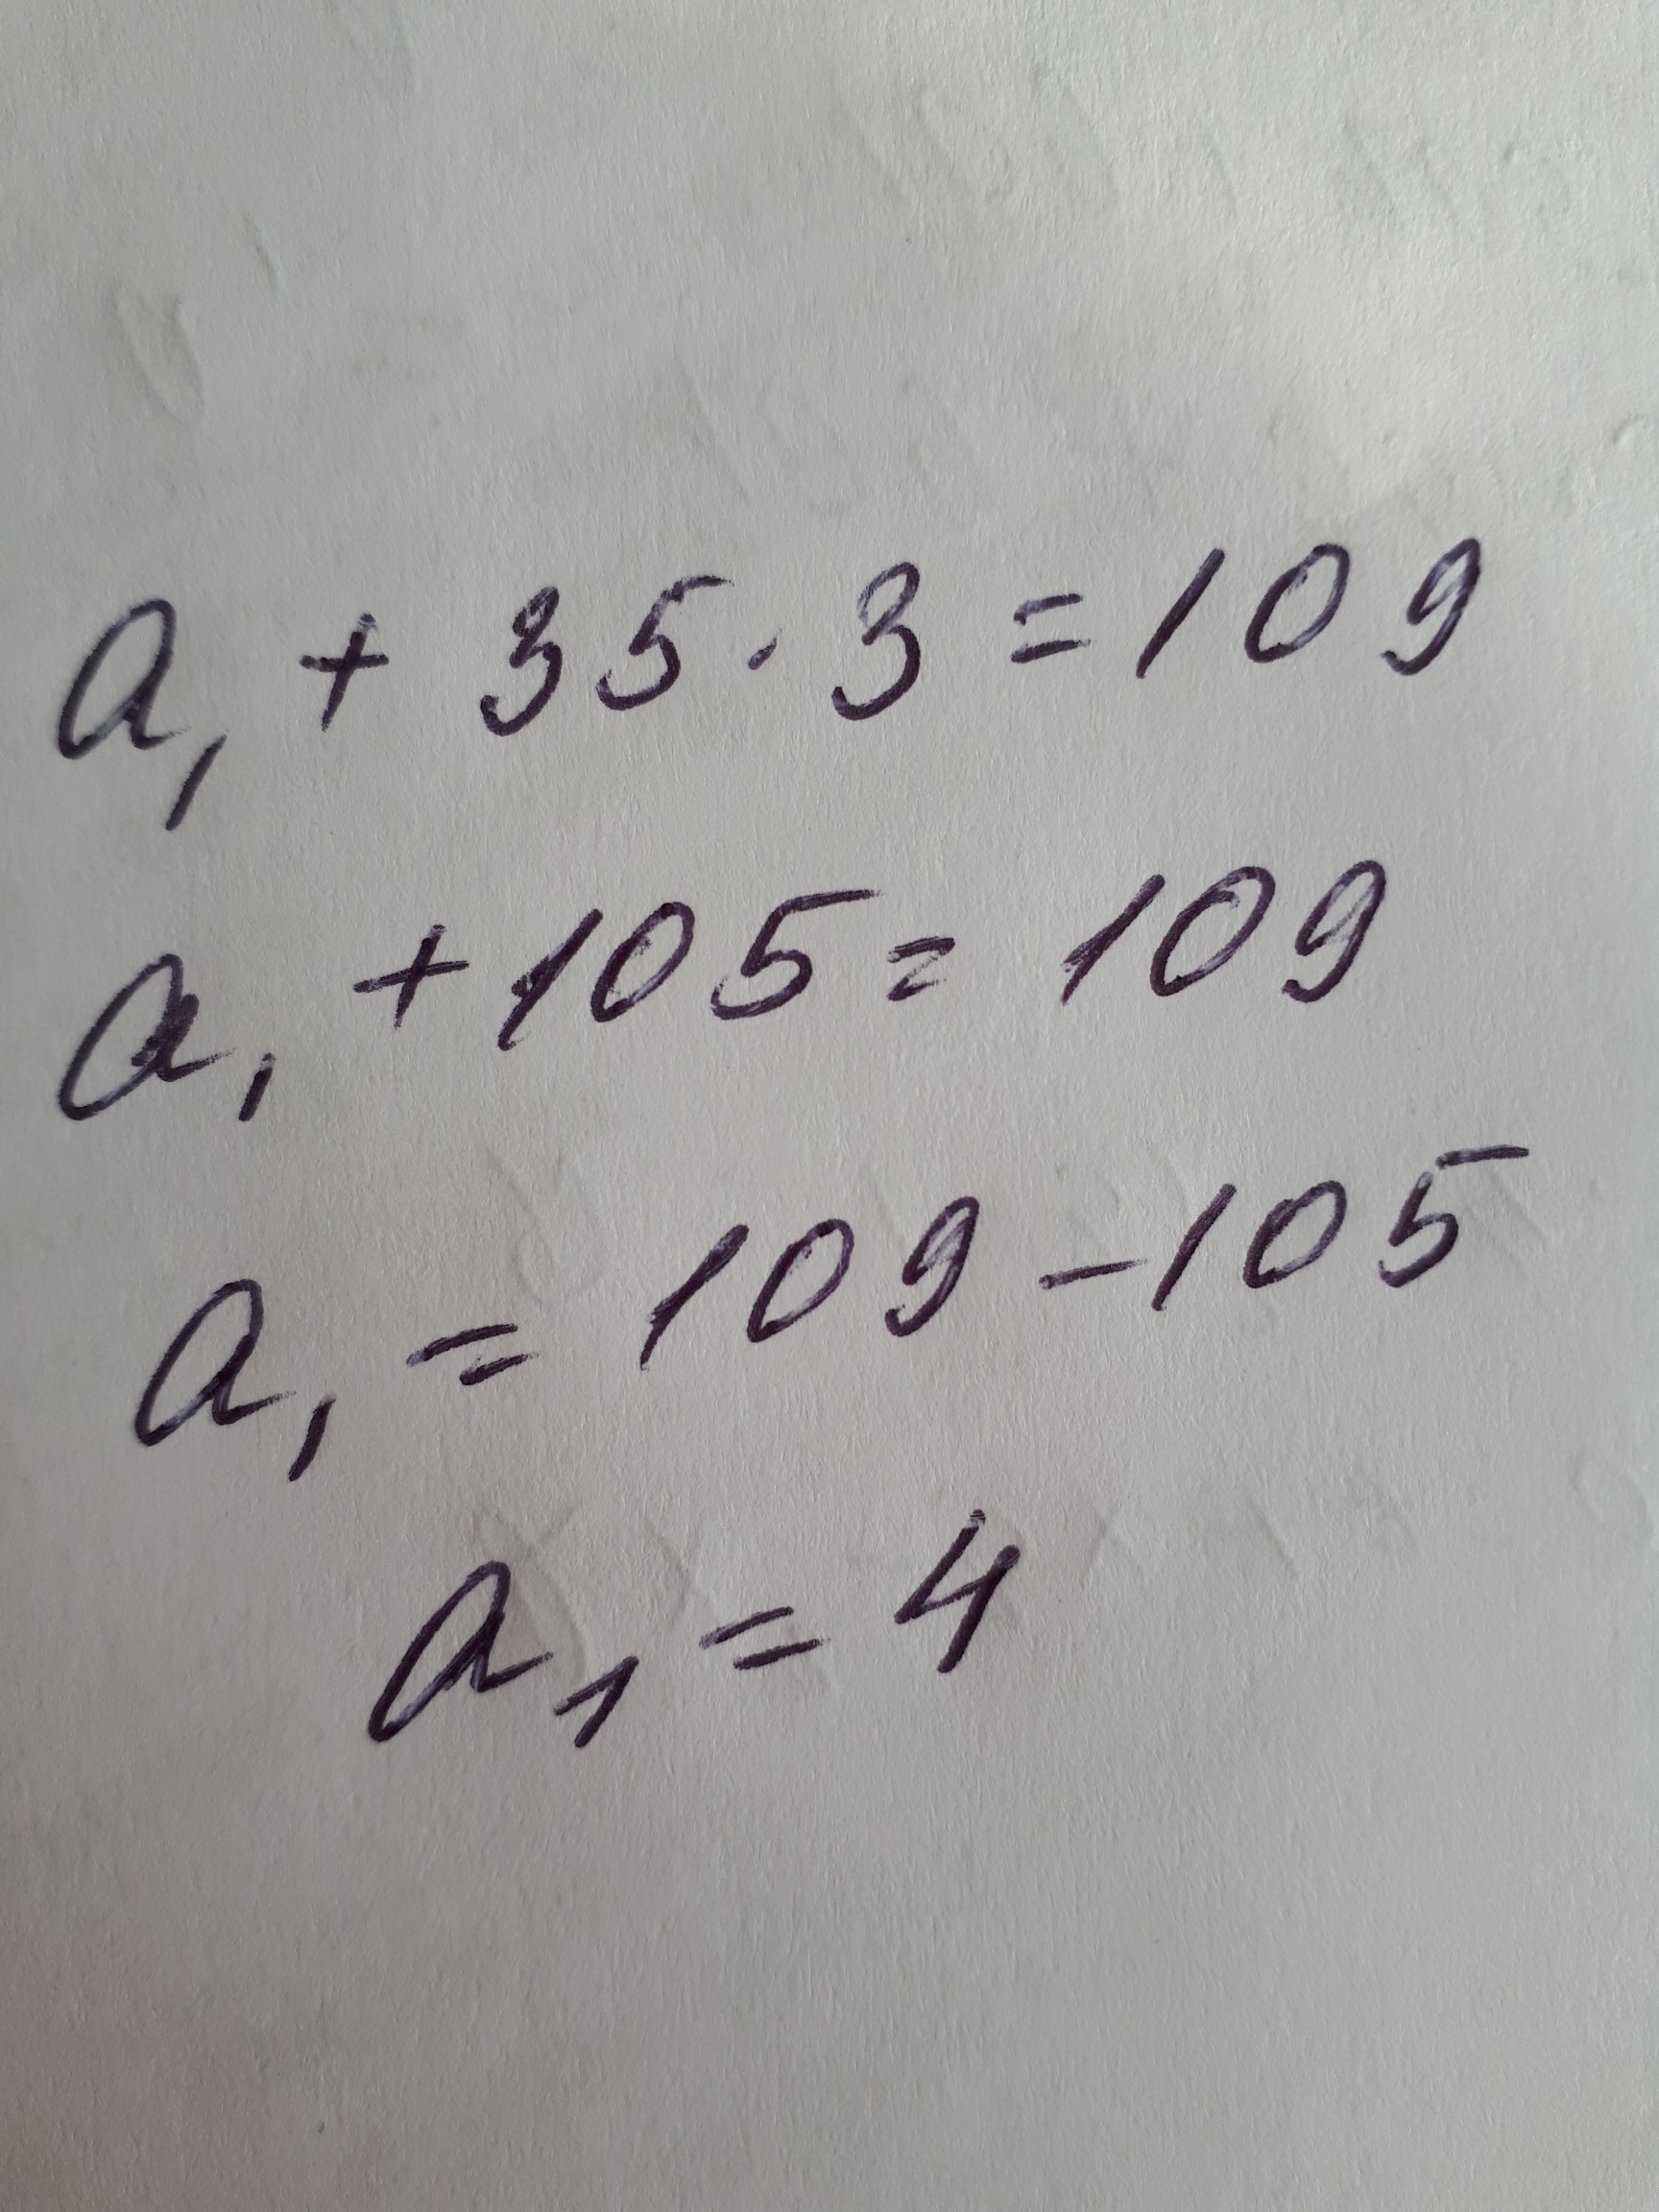 a₁ + 35 · 3 = 109
a₁ + 105 = 109
a₁ = 109 - 105
a₁ = 4